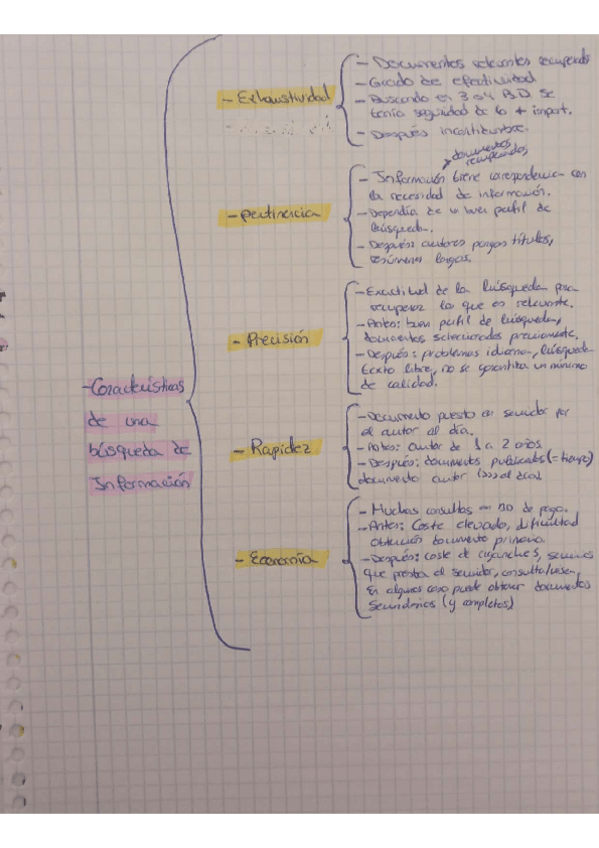 - Características
de una
búsqueda de
Información
- Exhaustividad
- Documentos relevantes recuperados
- Grado de efectividad
- Buscando en 3 o 4 BD se
tenía seguridad de lo + import.
- Después incertidumbre.
- Pertinencia
documentos
recuperados
- Información tiene correspondencia con
la necesidad de información.
- Dependía de un buen perfil de
búsqueda.
- Después: autores ponen títulos,
resúmenes largos.
- Precisión
- Exactitud de la búsqueda para
recuperar lo que es relevante.
- Antes: buen perfil de búsqueda,
documentos seleccionados previamente.
- Después: problemas idioma, búsqueda
texto libre, no se garantiza un mínimo
de calidad.
- Rapidez
- Documento puesto en servidor por
el autor al día.
- Antes: autor de 1 a 2 años.
- Después: documentos publicados (= tiempo)
documento autor al día
- Economía
- Muchas consultas son no de pago.
- Antes: Coste elevado, dificultad
obtención documento primario
- Después: coste de servicios
que presta el servidor, consulta
En algunos caso puede obtener documentos
Secundarios (y completos)